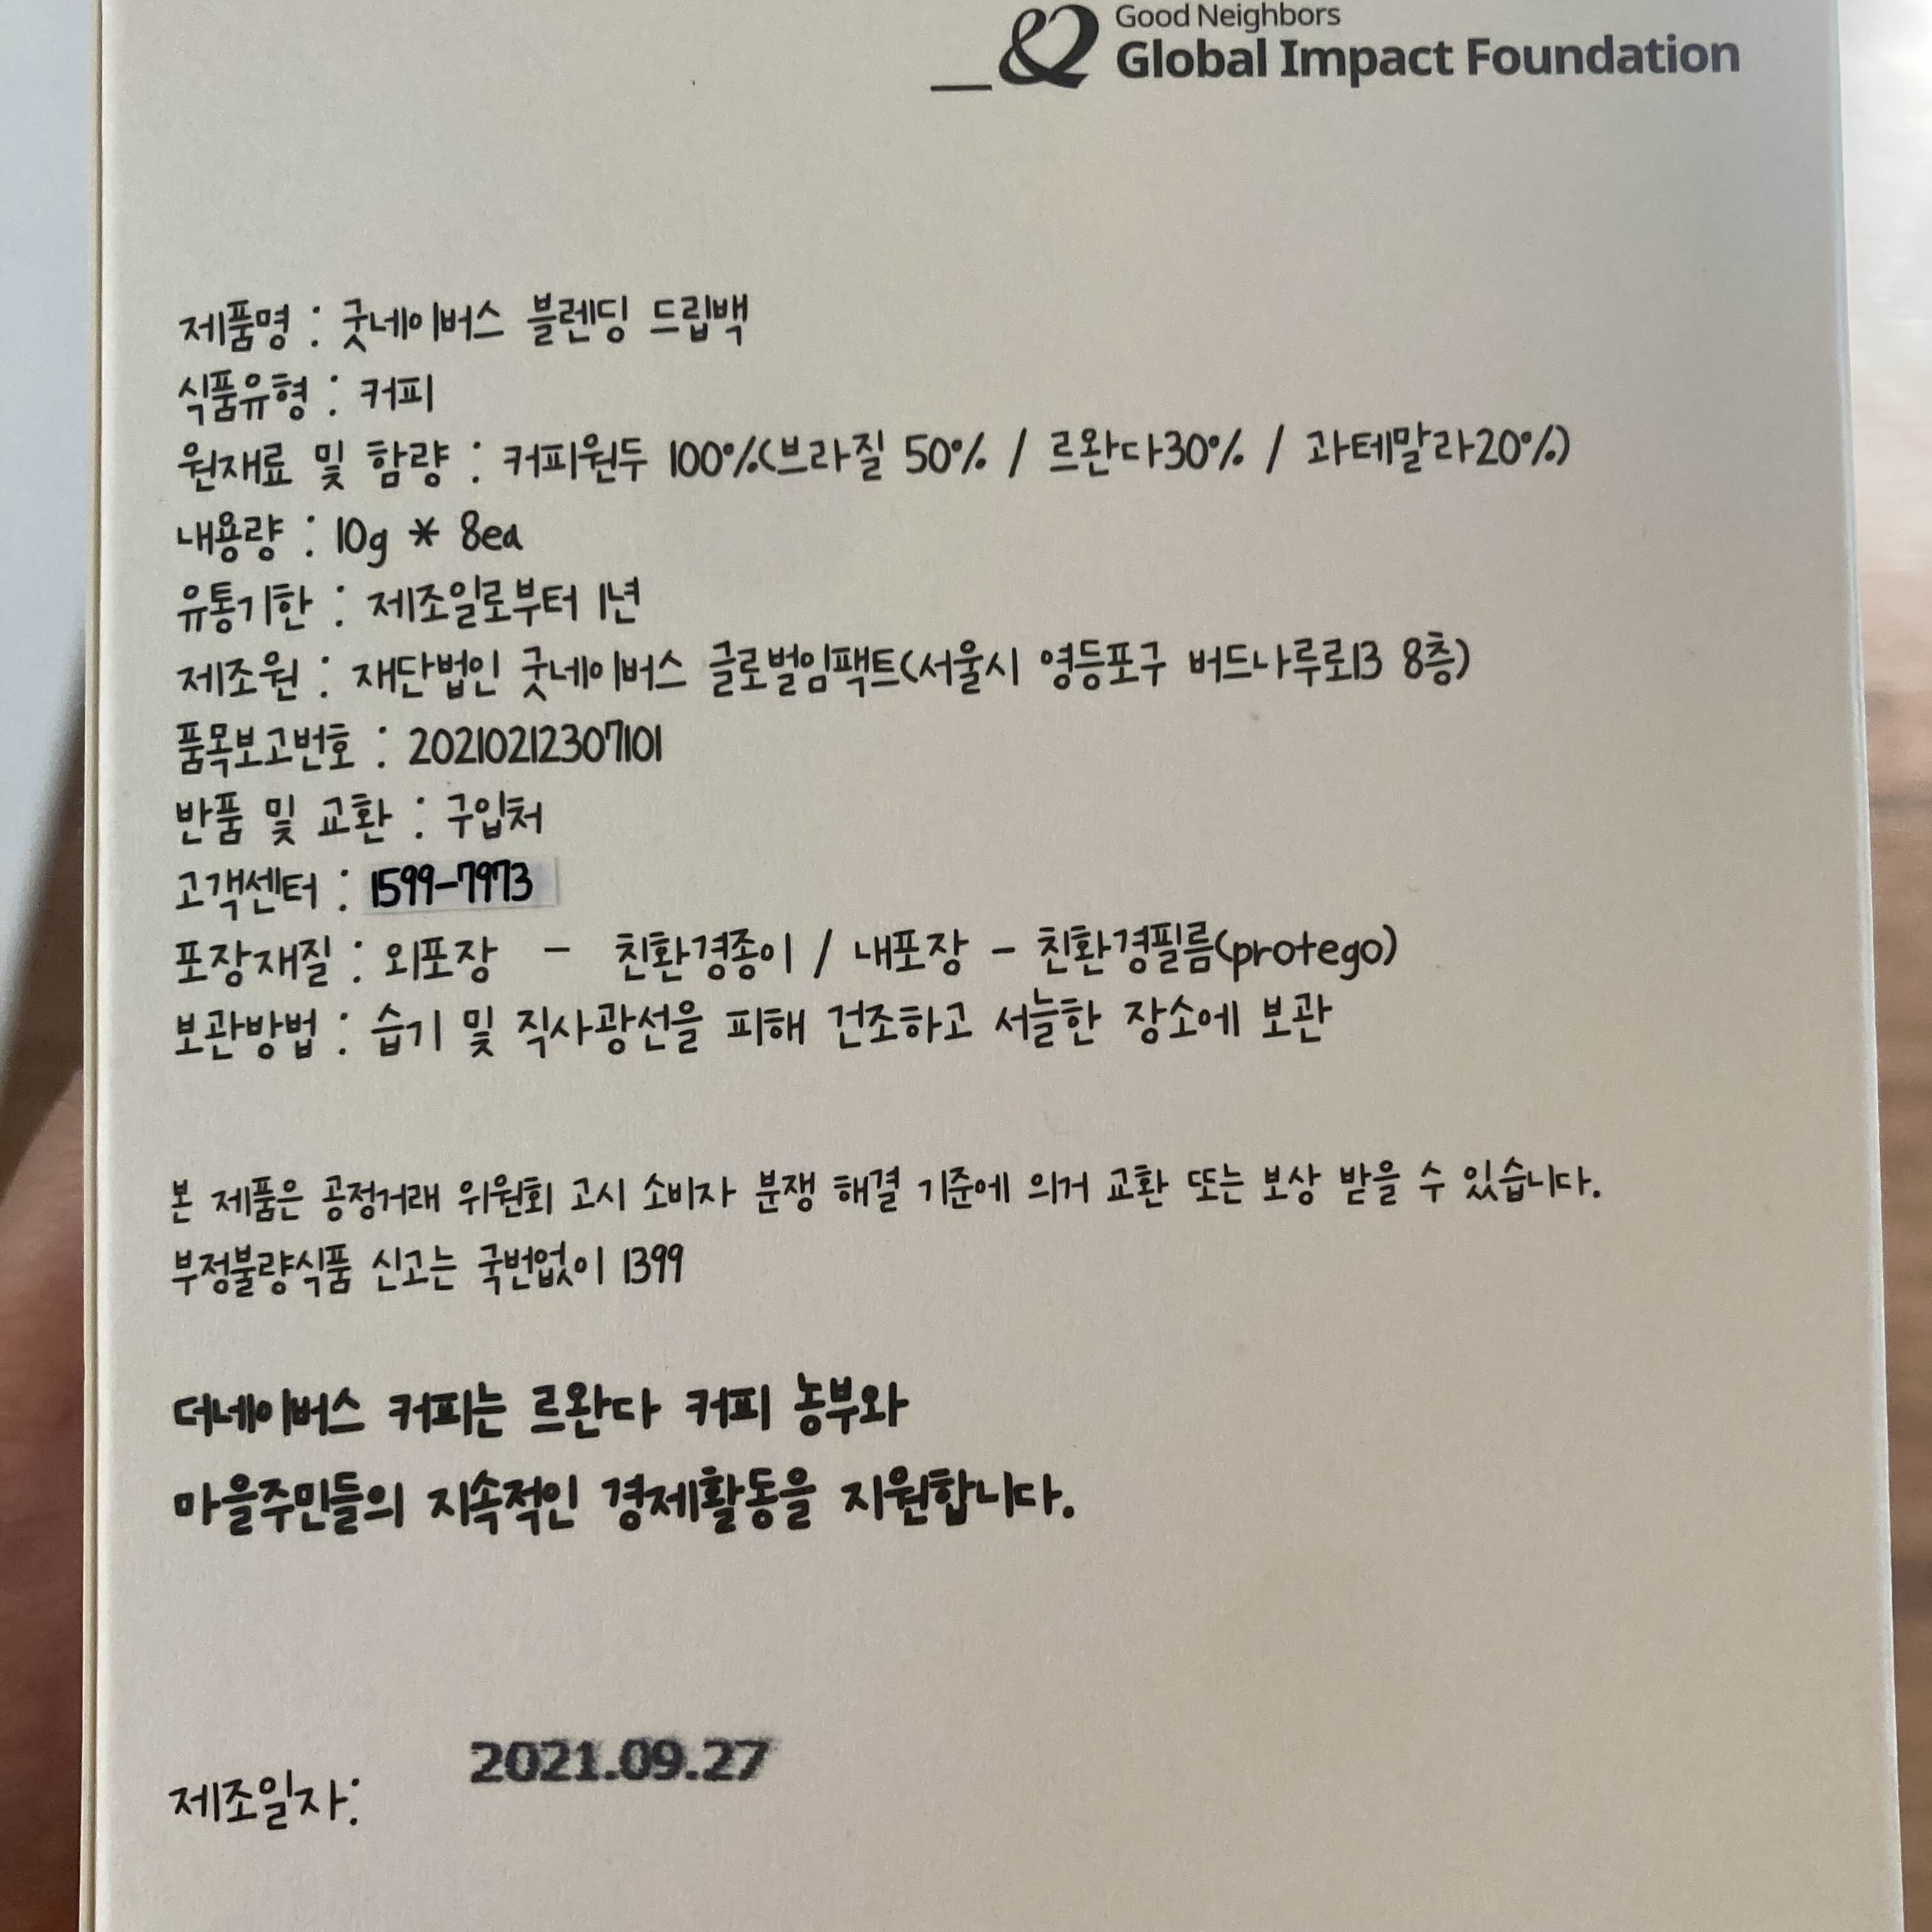 Good Neighbors
Global Impact Foundation
제품명 : 굿네이버스 블렌딩 드립백
식품유형 : 커피
원재료 및 함량 : 커피원두 100%(브라질 50% / 르완다30% / 과테말라20%)
내용량 : 10g * 8ea
유통기한 : 제조일로부터 1년
제조원 : 재단법인 굿네이버스 글로벌임팩트(서울시 영등포구 버드나루로13 8층)
품목보고번호 : 20210212307101
반품 및 교환 : 구입처
고객센터 : 1599-7973
포장재질 : 외포장 - 친환경종이 / 내포장 - 친환경필름(protego)
보관방법 : 습기 및 직사광선을 피해 건조하고 서늘한 장소에 보관
본 제품은 공정거래 위원회 고시 소비자 분쟁 해결 기준에 의거 교환 또는 보상 받을 수 있습니다.
부정불량식품 신고는 국번없이 1399
더네이버스 커피는 르완다 커피 농부와
마을주민들의 지속적인 경제활동을 지원합니다.
2021.09.27
제조일자: